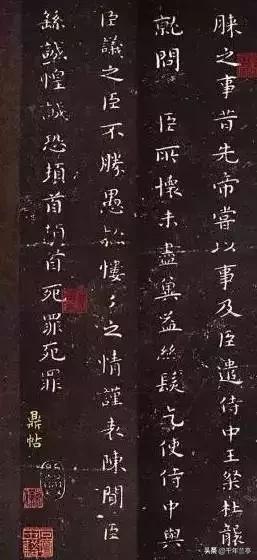 之事昔先帝嘗以事及臣遣侍中王粲杜襲
就問 臣所懷未盡冀益絲髮乞使侍中與
臣議之臣不勝愚款慺々之情謹表陳聞臣
繇誠惶誠恐頓首頓首死罪死罪
鼎帖
头条 @千年兰亭